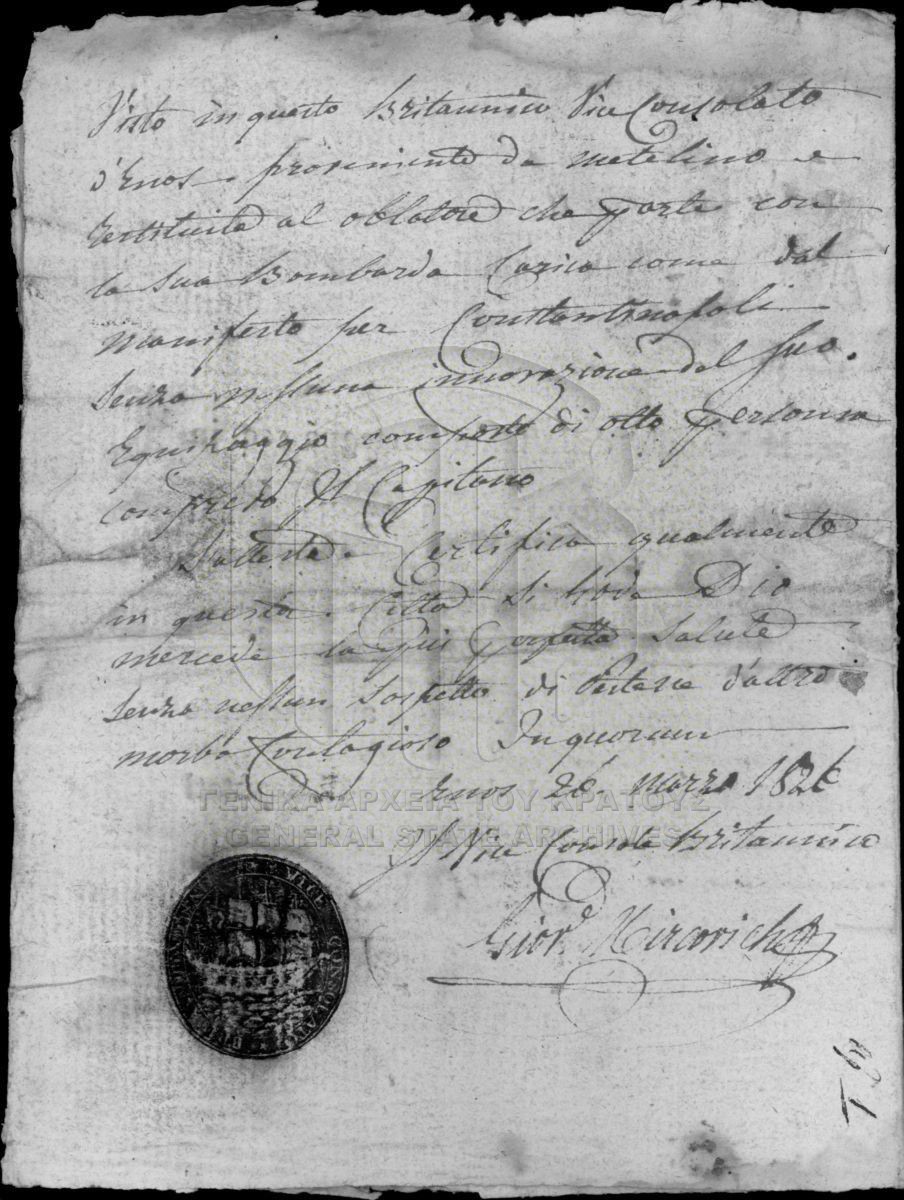 Visto in questo Britannico Vice Consolato
d'Enos proveniente da Metelino e
restituita al oblatore che parte con
la sua Bombarda Carica come dal
manifesto per Constantinopoli
senza nessuna innovazione del suo.
Equipaggio composto di otto persona
compreso Il Capitano
Certifica qualmente
in questa Città si goda Dio
mercede la più perfetta salute
senza nessun sospetto di Peste ne d'altro
morbo Contagioso In quorum
Enos 26 marzo 182
Il Vice Console Britannico
Gior. Mircovich
ΓΕΝΙΚΑ ΑΡΧΕΙΑ ΤΟΥ ΚΡΑΤΟΥΣ
GENERAL STATE ARCHIVES
VICE CONSOLATO